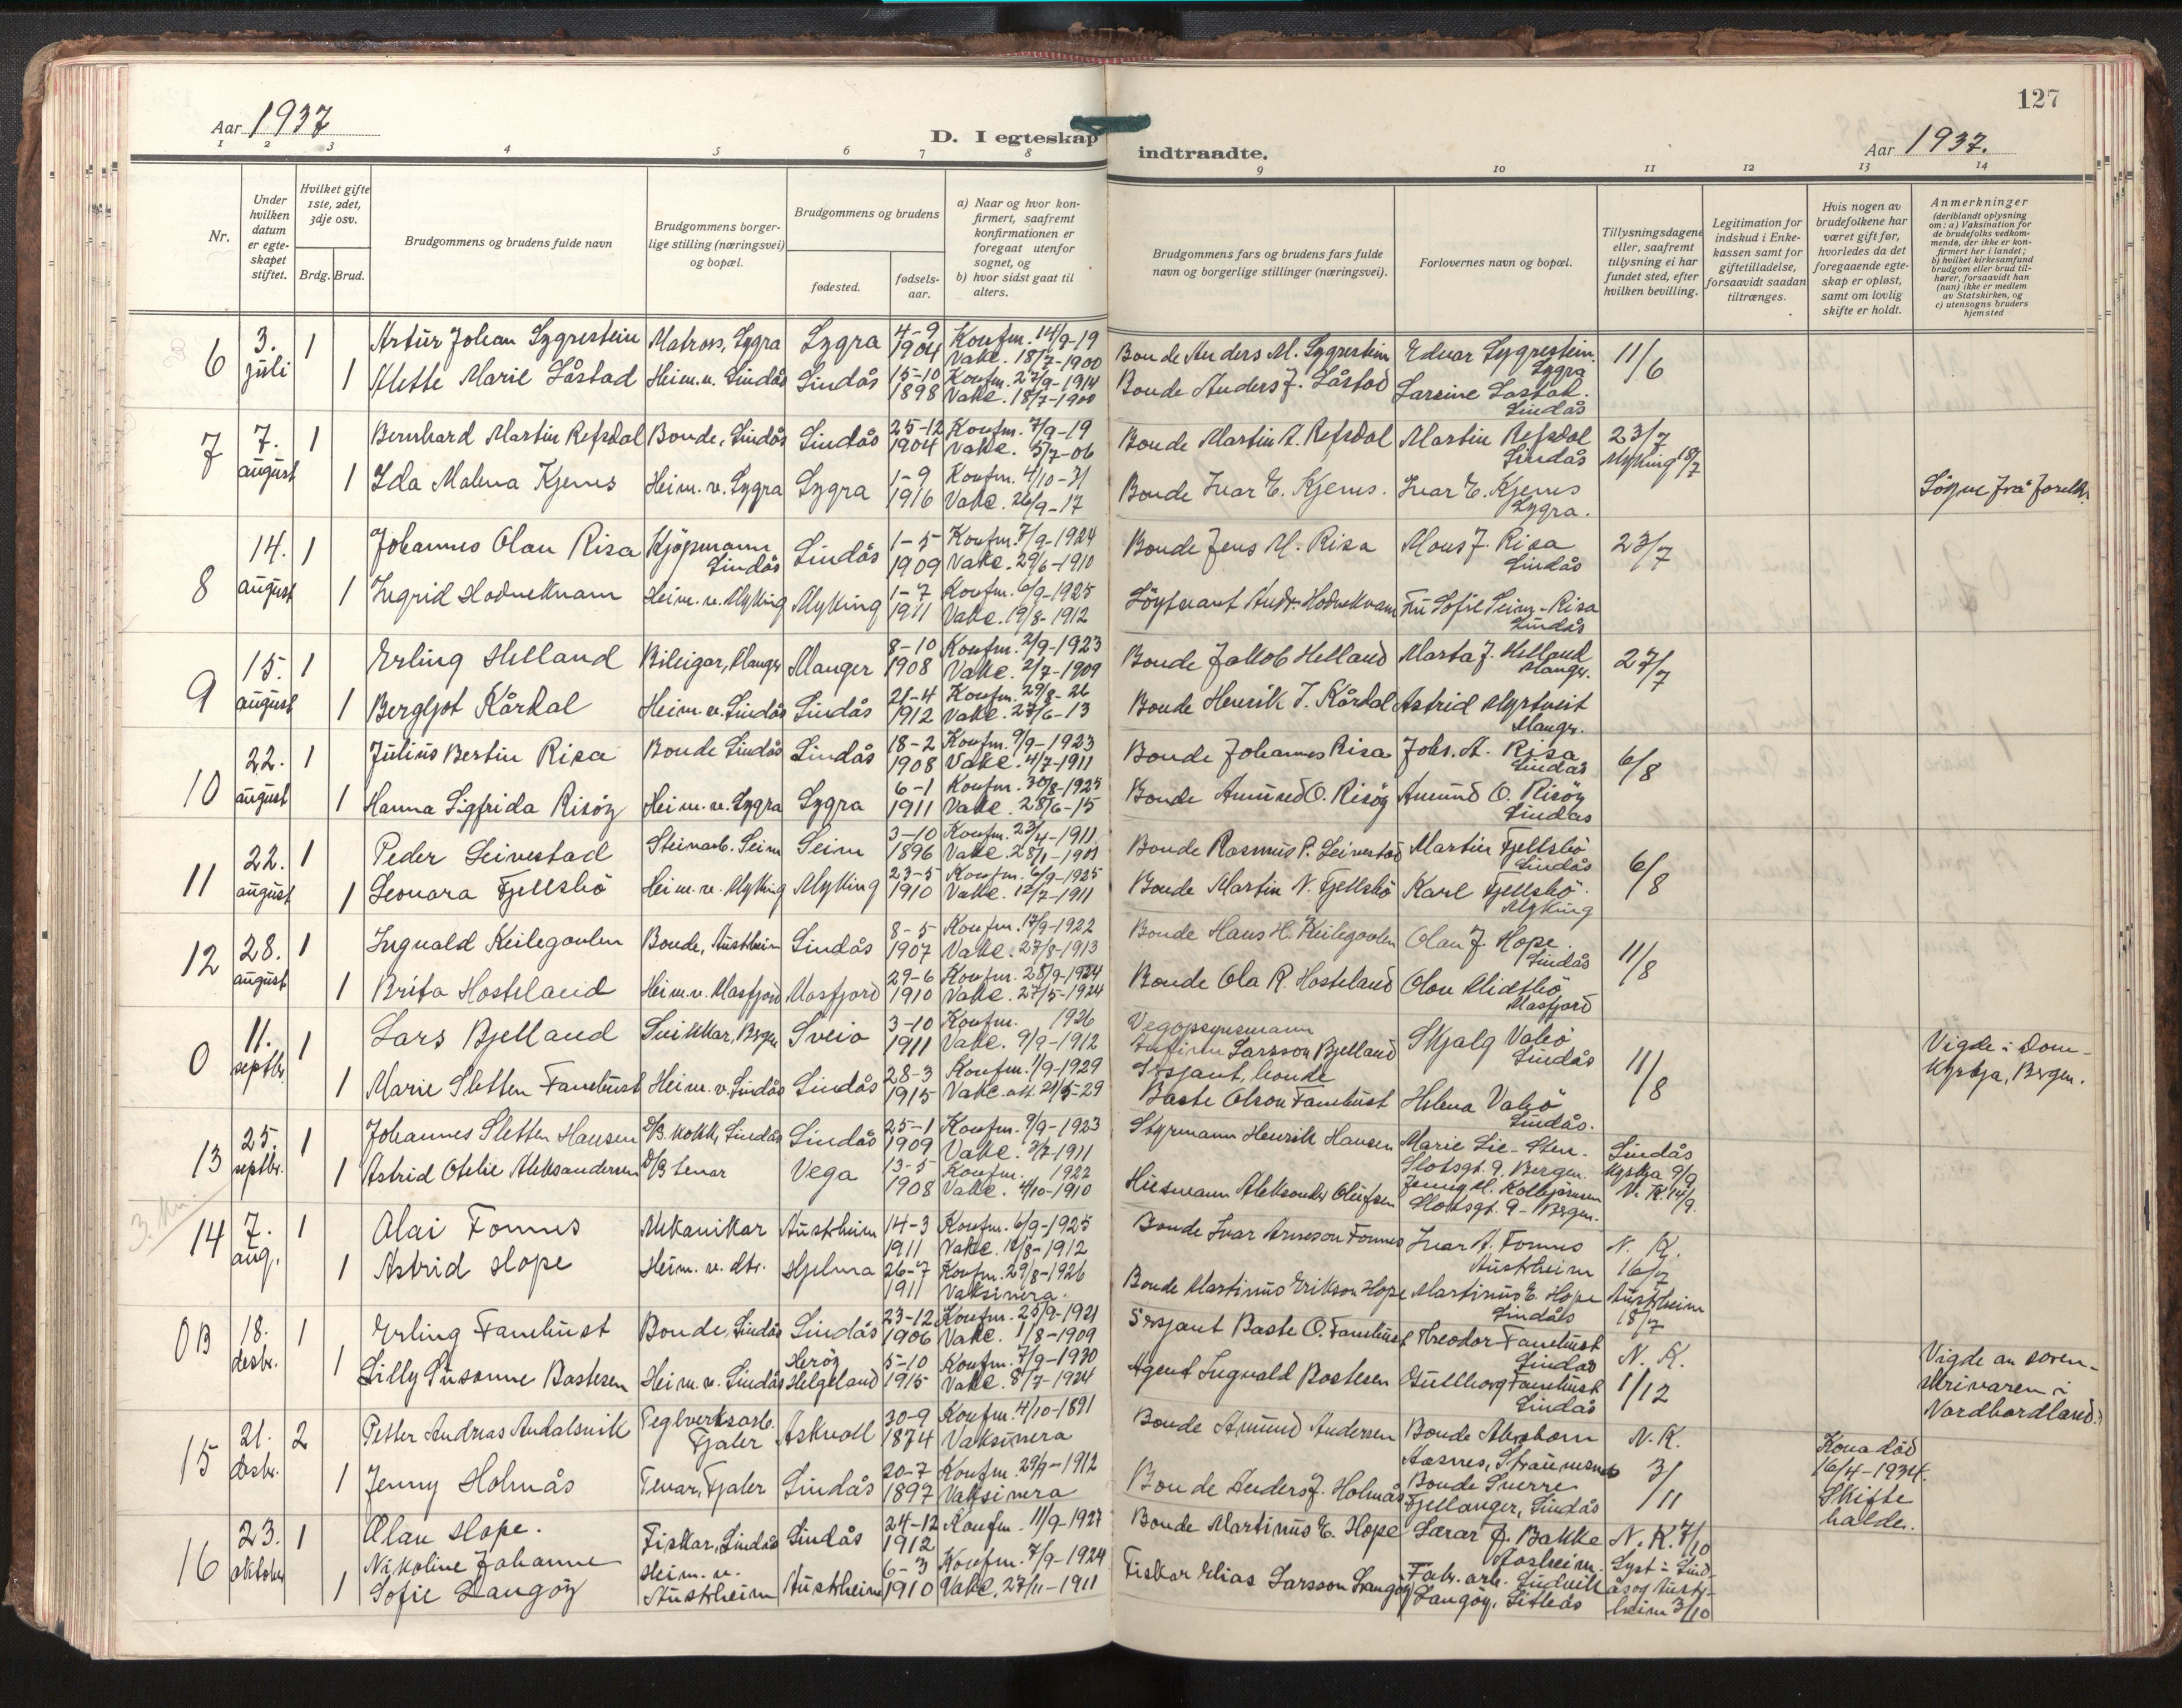 127
Aar 1937
D. I egteskap indtraadte.
Aar 1937.
1 2 3 4 5 6 7 8 9 10 11 12 13 14
Nr.
Under hvilken datum er egteskapet stiftet.
Hvilket gifte 1ste, 2det, 3dje osv.
Brdg. Brud.
Brudgommens og brudens fulde navn
Brudgommens borgerlige stilling (næringsvei) og bopæl.
Brudgommens og brudens
fødested.
fødselsaar.
a) Naar og hvor konfirmert, saafremt konfirmationen er foregaat utenfor sognet, og
b) hvor sidst gaat til alters.
Brudgommens fars og brudens fars fulde navn og borgerlige stillinger (næringsvei).
Forlovernes navn og bopæl.
Tillysningsdagene eller, saafremt tillysning ei har fundet sted, efter hvilken bevilling.
Legitimation for indskud i Enkekassen samt for giftetilladelse, forsaavidt saadan tiltrænges.
Hvis nogen av brudefolkene har været gift før, hvorledes da det foregaaende egteskap er opløst, samt om lovlig skifte er holdt.
Anmerkninger
(deriblandt oplysning om: a) Vaksination for de brudefolks vedkommende, der ikke er konfirmert her i landet;
b) hvilket kirkesamfund brudgom eller brud tilhører, forsaavidt han (hun) ikke er medlem av Statskirken, og
c) utensogns bruders hjemsted
6 3. juli 1 Artur Johan Lygrestein Matros, Lygra Lygra 4-9 1904 Konfm. 14/9-19 Vakc. 18/7-1900 Bonde Anders M. Lygrestein Edvar Lygrestein. Lygra 11/6
1 Mette Marie Låstad Heim.v. Lindås Lindås 15-10 1898 Konfm. 27/9-1914 Vakc. 18/7-1900 Bonde Anders J. Låstad Larsine Lastad. Lindås
7 7. august 1 Bernhard Martin Refsdal Bonde, Lindås Lindås 25-12 1904 Konfm. 7/9-19 Vakc. 5/7-06 Bonde Martin A. Refsdal Martin Refsdal Lindås 23/7 Myking 18/7
1 Ida Malena Kjenes Heim. v. Lygra Lygra 1-9 1916 Konfm. 4/10-31 Vakc. 26/9-17 Bonde Ivar E. Kjenes. Ivar E. Kjenes Lygra.
8 14. august 1 Johannes Olav Risa Kjöpmann Lindås Lindås 1-5 1909 Konfm. 7/9-1924 Vakc. 29/6-1910 Bonde Jens M. Risa Mons J. Risa Lindås 23/7
1 Ingrid Hodneknam Heim. v. Myking Myking 1-7 1911 Konfm. 6/9-1925 Vakc. 19/8-1912 Fru Sofie Seim-Risa Lindås
9 15. august 1 Erling Helland Bileigar, Manger Manger 8-10 1908 Konfm. 2/9-1923 Vakc. 2/7-1909 Bonde Jakob Helland Marta J. Helland Manger. 27/7
1 Bergljot Kårdal Heim.v. Lindås Lindås 21-4 1912 Konfm. 29/8-26 Vakc. 27/6-13 Bonde Henrik J. Kårdal Astrid Myrtveit Manger.
10 22. august 1 Julius Bertin Risa Bonde Lindås Lindås 18-2 1908 Konfm. 9/9-1923 Vakc. 4/7-1911 Bonde Johannes Risa Johs. A. Risa Lindås 6/8
1 Hanna Sigfrida Risöy Heim.v. Lygra Lygra 6-1 1911 Konfm. 30/8-1925 Vakc. 28/6-15 Bonde Amund O. Risöy Amund O. Risöy Lindås
11 22. august 1 Peder Leivestad Steinarb. Seim Seim 3-10 1896 Konfm. 23/4-1911 Bonde Rasmus P. Leivestad Martin Fjellsbö Lindås 6/8
1 Leonara Fjellsbö Heim.v. Myking Myking 23-5 1910 Konfm. 6/9-1925 Vakc. 12/7-1911 Bonde Martin N. Fjellsbö Karl Fjellsbö. Myking
12 28. august 1 Ingvald Keilegavlen Bonde, Austrheim Lindås 8-5 1907 Konfm. 17/9-1922 Vakc. 27/8-1913 Bonde Hans H. Keilegavlen Olav J. Hope. Lindås 11/8
1 Brita Hosteland Heim.v. Masfjord Masfjord 29-6 1910 Konfm. 28/9-1924 Vakc. 27/5-1924 Bonde Ola R. Hosteland Olav Midtbö Masfjord
0 11. septbr. 1 Lars Bjelland Snikkar, Bergen Sveio 3-10 1911 Konfm. 1926 Vakc. 9/9-1912 Vegopsynsmann Larsson Bjelland Skjalg Valsö Lindås 11/8 Vigde i Domkyrkja, Bergen.
1 Marie Sletten Fanebust Heim.v. Lindås Lindås 28-3 1915 Konfm. 1/9-1929 Vakc. att. 21/5-29 Sersjant, bonde Baste Olson Fanebust Helena Valsö Lindås.
13 25. septbr. 1 Johannes Sletten Hansen D/B. kokk, Lindås Lindås 25-1 1909 Konfm. 9/9-1923 Vakc. 3/7-1911 Styrmann Henrik Hansen Marie Lie-Sten. Slotsgt. 9. Bergen. Lindås kyrkja 9/9 N. K. 14/9.
1 Astrid Otelie Aleksandersen D/B tenar Vega 13-5 1908 Konfm. 1922 Vakc. 4/10-1910 Husmann Aleksander Olufsen Jenny M. Kolbjörnsen Slottsgt. 9 - Bergen.
14 7. aug. 1 Olai Fonnes Mekanikar Austrheim 14-3 1911 Konfm. 6/9-1925 Vakc. 18/8-1912 Bonde Ivar Arneson Fonnes Ivar A. Fonnes Austrheim N. K. 16/7
1 Astrid Hope Heim. v. dtr. Hjelma 26-7 1911 Konfm. 29/8-1926 Vaksinera. Bonde Martinus Erikson Hope Martinus E. Hope Lindås Austrheim 18/7
0B 18. desbr. 1 Erling Fanebust Bonde, Lindås Lindås 23-12 1906 Konfm. 25/9-1921 Vakc. 1/8-1909 Sersjant Baste O. Fanebust Theodor Fanebust Lindås N. K. 1/12 Vigde av sorenskrivaren i Nordhordland.
1 Lilly Susanne Bastesen Heim.v. Lindås Heröy Helgeland 5-10 1915 Konfm. 7/9-1930 Vakc. 8/7-1924 Agent Ingvald Bastesen Gullborg Fanebust Lindås
15 21. desbr. 2 Petter Andreas Andalsvik Teglverksarb. Fjaler Askvoll 30-9 1874 Konfm. 4/10-1891 Vaksinera Bonde Amund Andersen Bonde Abraham Aasnes, Straumsnes N.K. 3/11 Kona död 16/4-1934. Skifte halde.
1 Jenny Holmås Tenar, Fjaler Lindås 20-7 1897 Konfm. 29/9-1912 Vaksinera Bonde Anders J. Holmås Bonde Sverre Fjellanger, Lindås
16 23. oktober 1 Olav Hope. Fiskar, Lindås Lindås 24-12 1912 Konfm. 11/9-1927 Bonde Martinus E. Hope Lærar J. Bakke Aasheim. N.K. 7/10
1 Nikoline Johanne Sofie Langöy Heim. v. Austrheim Austrheim 6-3 1910 Konfm. 7/9-1924 Vakc. 27/11-1911 Fiskar Elias Larsson Langöy Fabr. arb. Ludvik Langöy, Litlås Lyst i Lindås og Austrheim 3/10